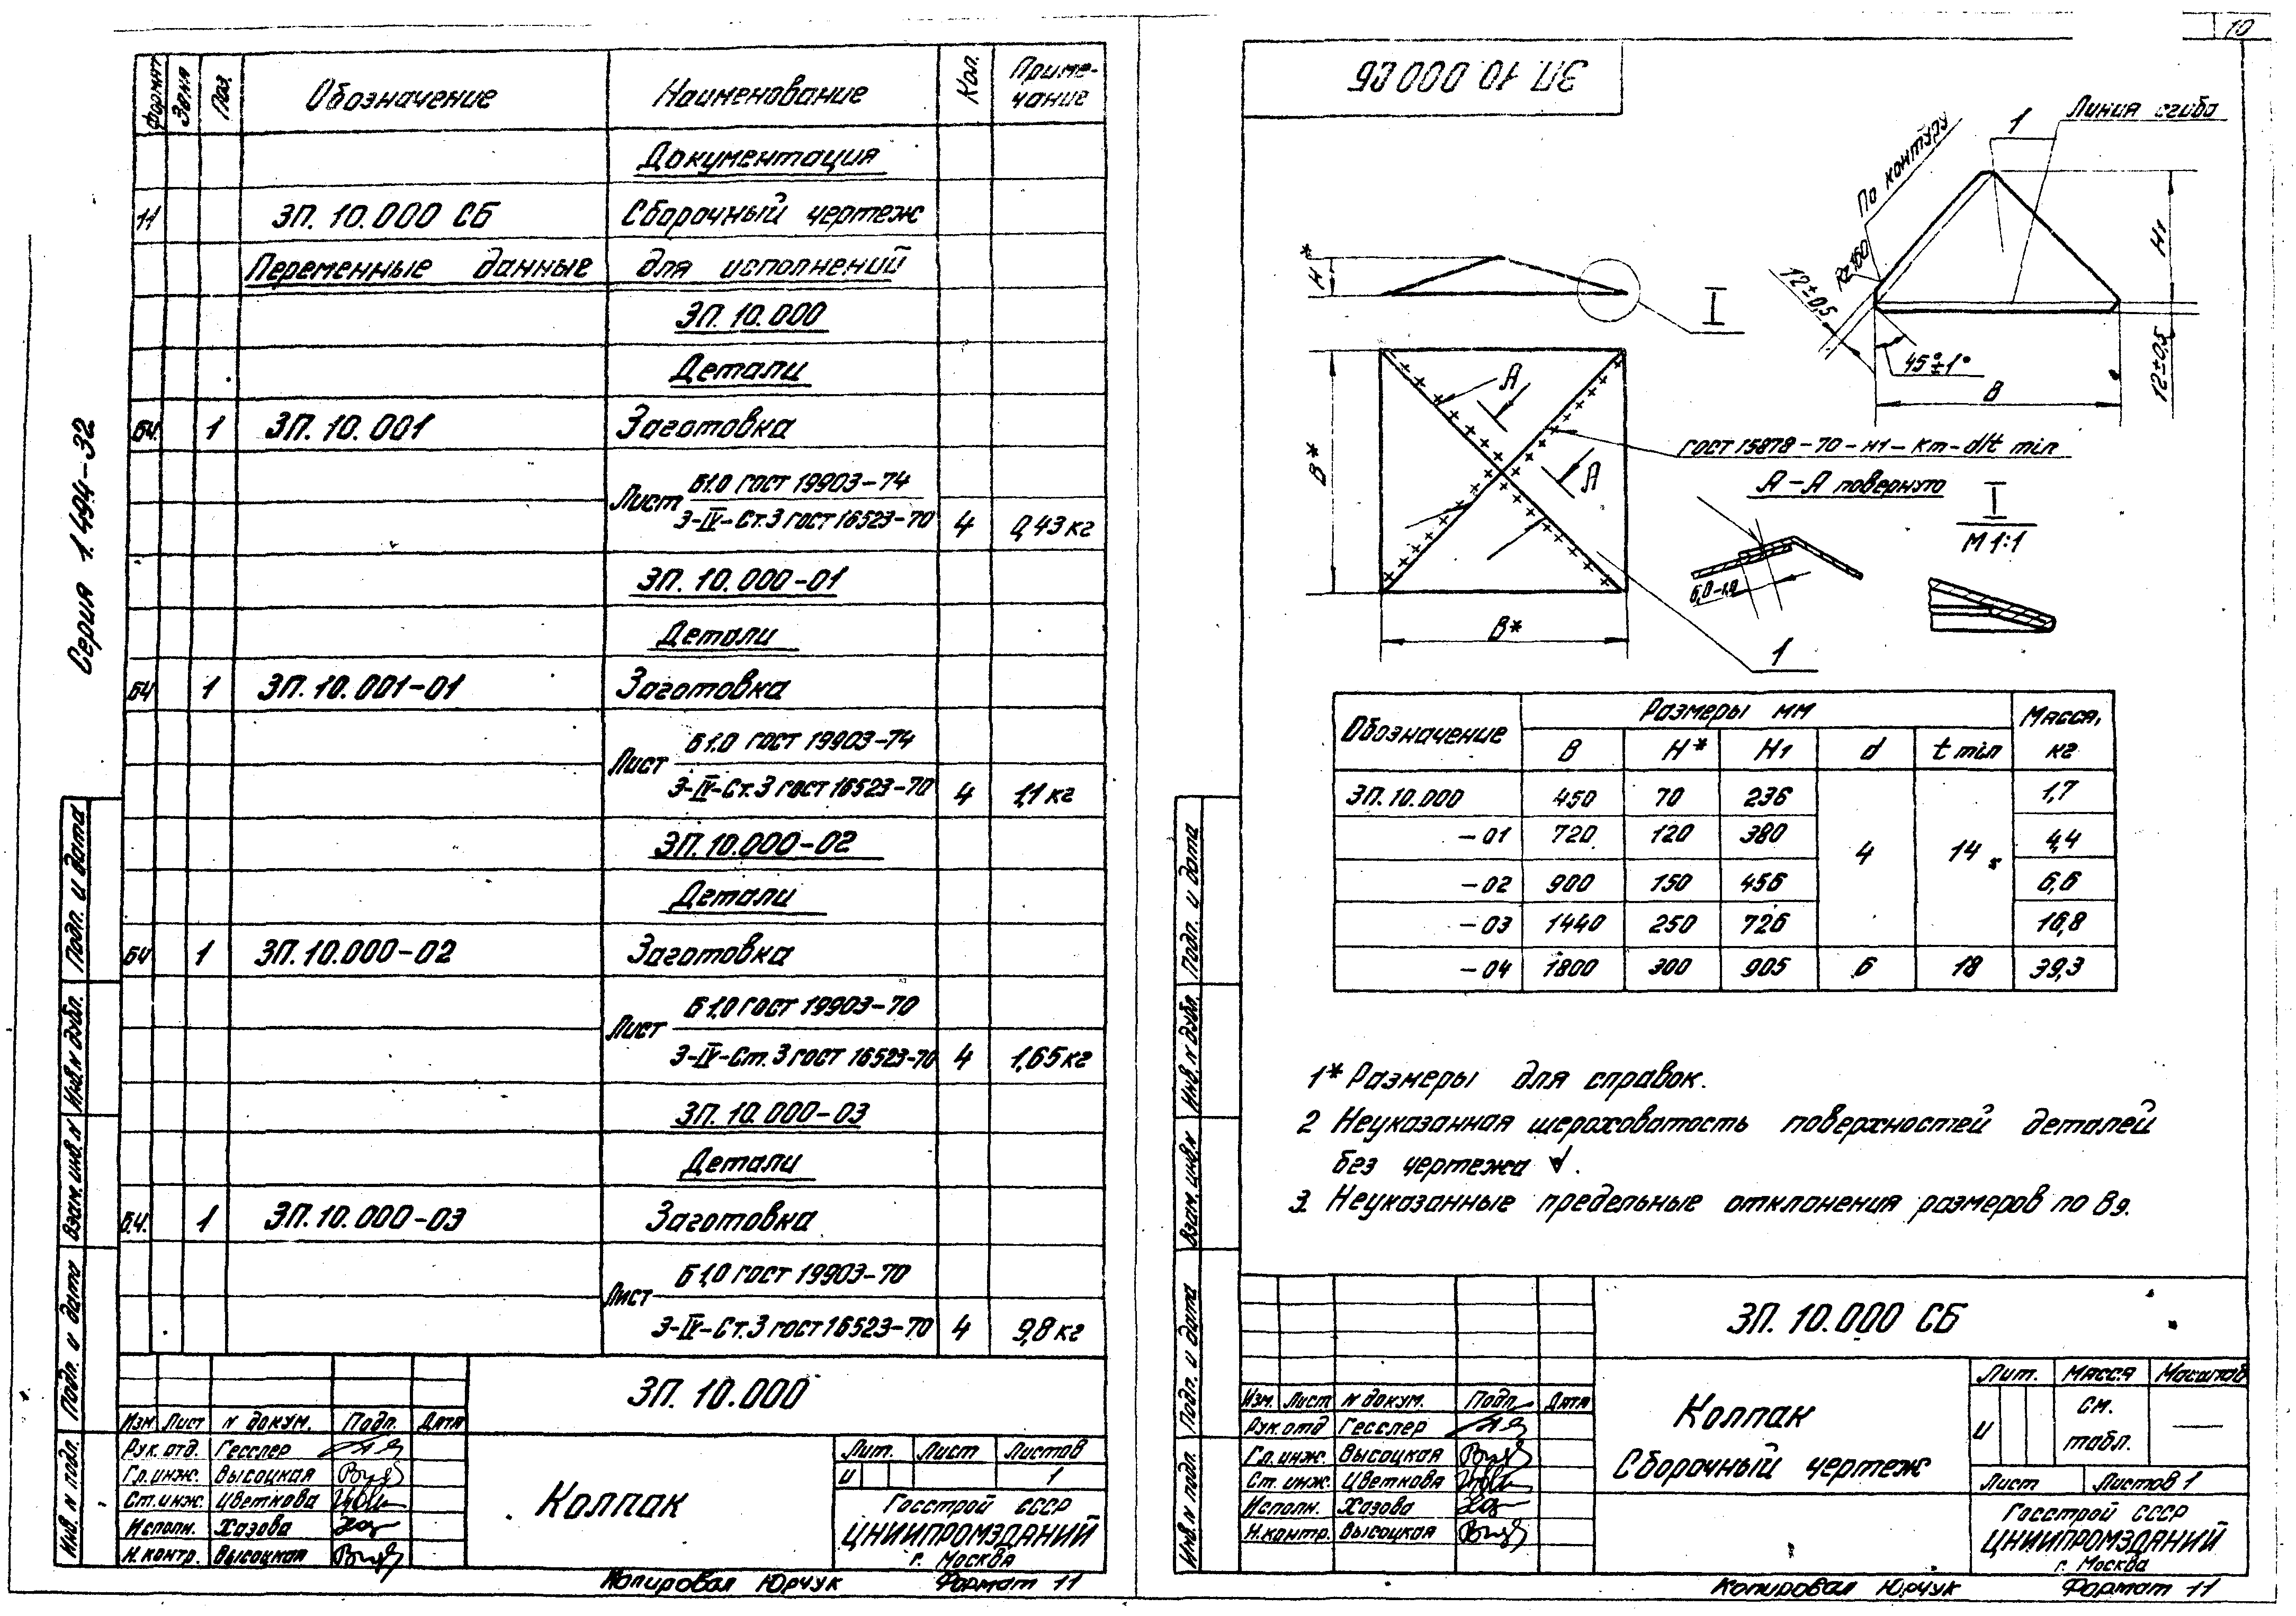 Серия 1.494-32
Формат Зона Поз. Обозначение Наименование Кол. Приме-
чание
Документация
11 ЗП. 10.000 СБ Сборочный чертеж
Переменные данные для исполнений
ЗП. 10.000
Детали
БЧ. 1 ЗП. 10. 001 Заготовка
Б1.0 ГОСТ 19903-74
Лист
3-IV-Ст.3 ГОСТ 16523-70 4 0,43 кг
ЗП. 10.000-01
Детали
БЧ 1 ЗП. 10. 001-01 Заготовка
Б1.0 ГОСТ 19903-74
Лист
3-IV-Ст.3 ГОСТ 16523-70 4 1,1 кг
ЗП.10.000-02
Детали
БЧ 1 ЗП.10.000-02 Заготовка
Б1,0 ГОСТ 19903-70
Лист
3-IV-Ст.3 ГОСТ 16523-70 4 1,65 кг
ЗП. 10.000-03
Детали
Б.Ч. 1 ЗП.10.000-03 Заготовка
Б1,0 ГОСТ 19903-70
Лист
3-IV-Ст.3 ГОСТ 16523-70 4 9,8 кг
Инв. N подл. Подп. и дата Взам. инв. N Инв. N дубл. Подп. и дата
ЗП. 10.000
Изм Лист N докум. Подп. Дата
Рук. отд. Гесслер
Гл. инж. Высоцкая
Ст. инж. Цветкова
Исполн. Хазова
Н. контр. Высоцкая
Колпак
Лит. Лист Листов
И 1
Госстрой СССР
ЦНИИПРОМЗДАНИЙ
г. Москва
Копировал Юрчук Формат 11
10
ЗП 10.000 СБ
Линия сгиба
1
По контуру
Rz160
12±0,5
H1
45°±1°
В
12±0,5
H*
I
А
А
В*
В*
ГОСТ 15878-70-Н1-Кт-d/t min
А-А повернуто
I
М 1:1
6,0-1,0
1
Обозначение Размеры мм Масса,
кг
В H* H1 d t min
ЗП. 10.000 450 70 236 4 14 1,7
-01 720 120 380 4,4
-02 900 150 456 6,6
-03 1440 250 726 16,8
-04 1800 300 905 6 18 39,3
1* Размеры для справок.
2 Неуказанная шероховатость поверхностей деталей
без чертежа √.
3. Неуказанные предельные отклонения размеров по В9.
Инв. N подл. Подп. и дата Взам. инв. N Инв. N дубл. Подп. и дата
ЗП. 10.000 СБ
Изм. Лист N докум. Подп. Дата
Рук. отд Гесслер
Гл. инж. Высоцкая
Ст. инж. Цветкова
Исполн. Хазова
Н. контр. Высоцкая
Колпак
Сборочный чертеж
Лит. Масса Масштаб
И см.
табл. —
Лист Листов 1
Госстрой СССР
ЦНИИПРОМЗДАНИЙ
г. Москва
Копировал Юрчук Формат 11